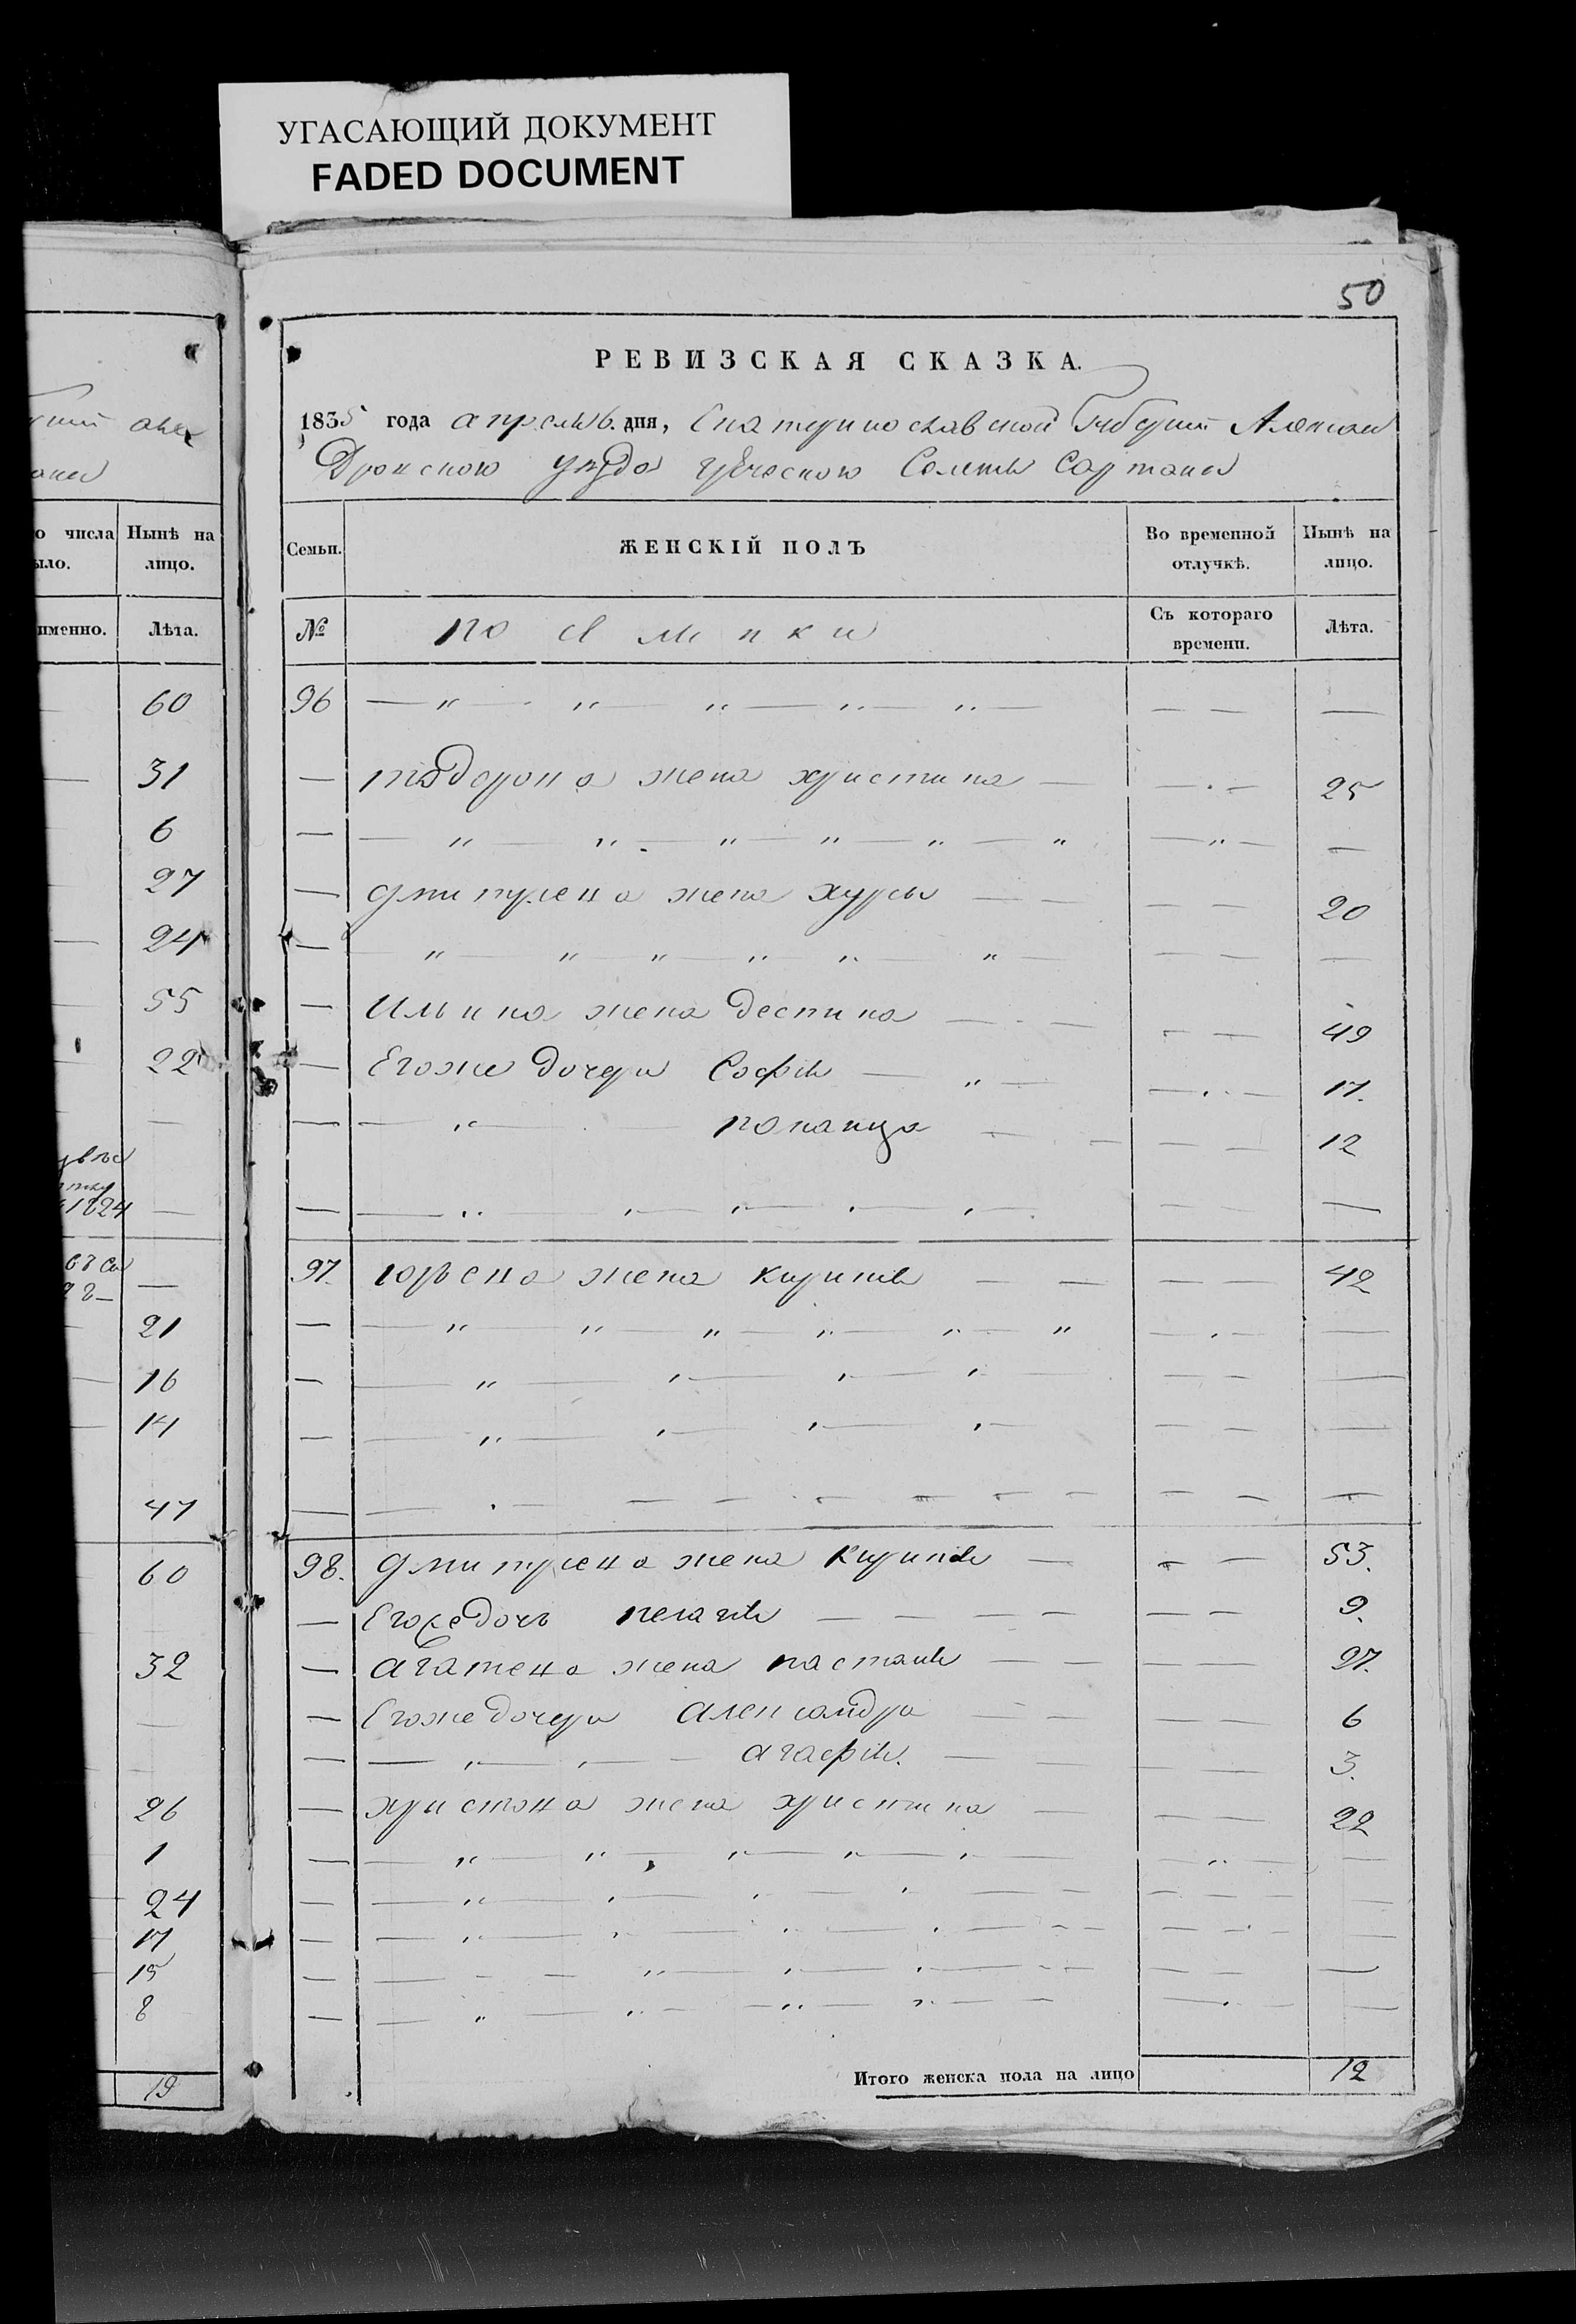 УГАСАЮЩИЙ ДОКУМЕНТ
FADED DOCUMENT
50
РЕВИЗСКАЯ СКАЗКА.
1835 года апреля 6. дня, Екатеринославской Губернии Алексан
Дронского уѣзда Греческого Селения Сартаны
о числа
ыло.
Нынѣ на
лицо.
Семьи.
ЖЕНСКІЙ ПОЛЪ
Во временной
отлучкѣ.
Нынѣ на
лицо.
именно.
Лѣта.
№
Съ котораго
времени.
Лѣта.
60
96
31
тодорона жена христина 25
6
27
дмитрена жена хурсы 20
24
55
Ильина жена Деспина 49
22
Егоже дочери Софія 17.
попанца 12
1824
97. юрьена жена Кирикія 42
21
16
14
47
60
98. дмитрена жена Кирикія 53.
Егоже дочь пелагія 9.
32
агатена жена настасія 27.
Егоже дочери александра 6
агафія. 3.
26
христона жена христина 22
1
24
17
15
8
19
Итого женска пола на лицо 12